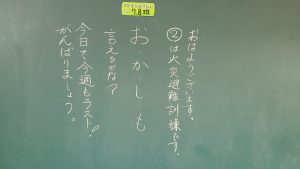 7.8班
おはようございます。
②は火災避難訓練です。
お・か・し・も
言えるかな？
今日で今週もラスト！
がんばりましょう。